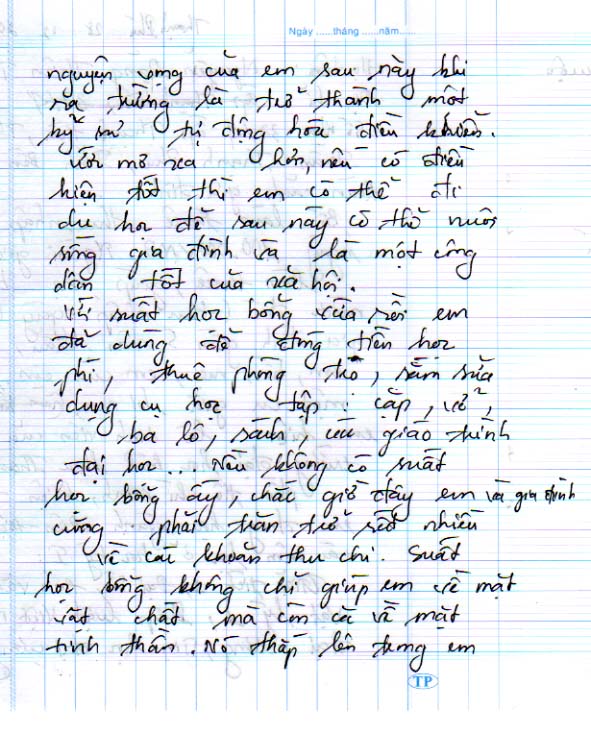 Ngày ...... tháng ...... năm......
nguyện vọng của em sau này khi
ra trường là trở thành một
kỹ sư tự động hóa điều khiển.
Ước mơ xa hơn, nếu có điều
kiện tốt thì em có thể đi
du học để sau này có thể nuôi
sống gia đình và là một công
dân tốt của xã hội.
Với suất học bổng vừa rồi em
đã dùng để đóng tiền học
phí, thuê phòng trọ, sắm sửa
dụng cụ học tập: cặp, vở,
ba lô, sách, các giáo trình
đại học... Nếu không có suất
học bổng ấy, chắc giờ đây em và gia đình
cũng phải trăn trở rất nhiều
về các khoản thu chi. Suất
học bổng không chỉ giúp em về mặt
vật chất mà còn cả về mặt
tinh thần. Nó thắp lên trong em
TP